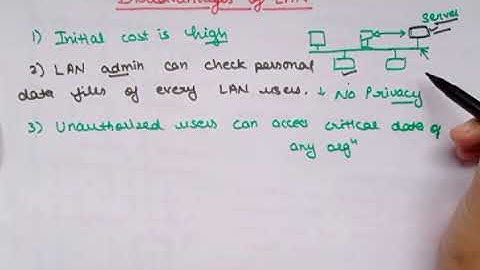 Disadvantages of LAN
Server
1) Initial cost is high
2) LAN admin can check personal
data files of every LAN users. ↓ No Privacy
3) Unauthorized users can access critical data of
any orgⁿ